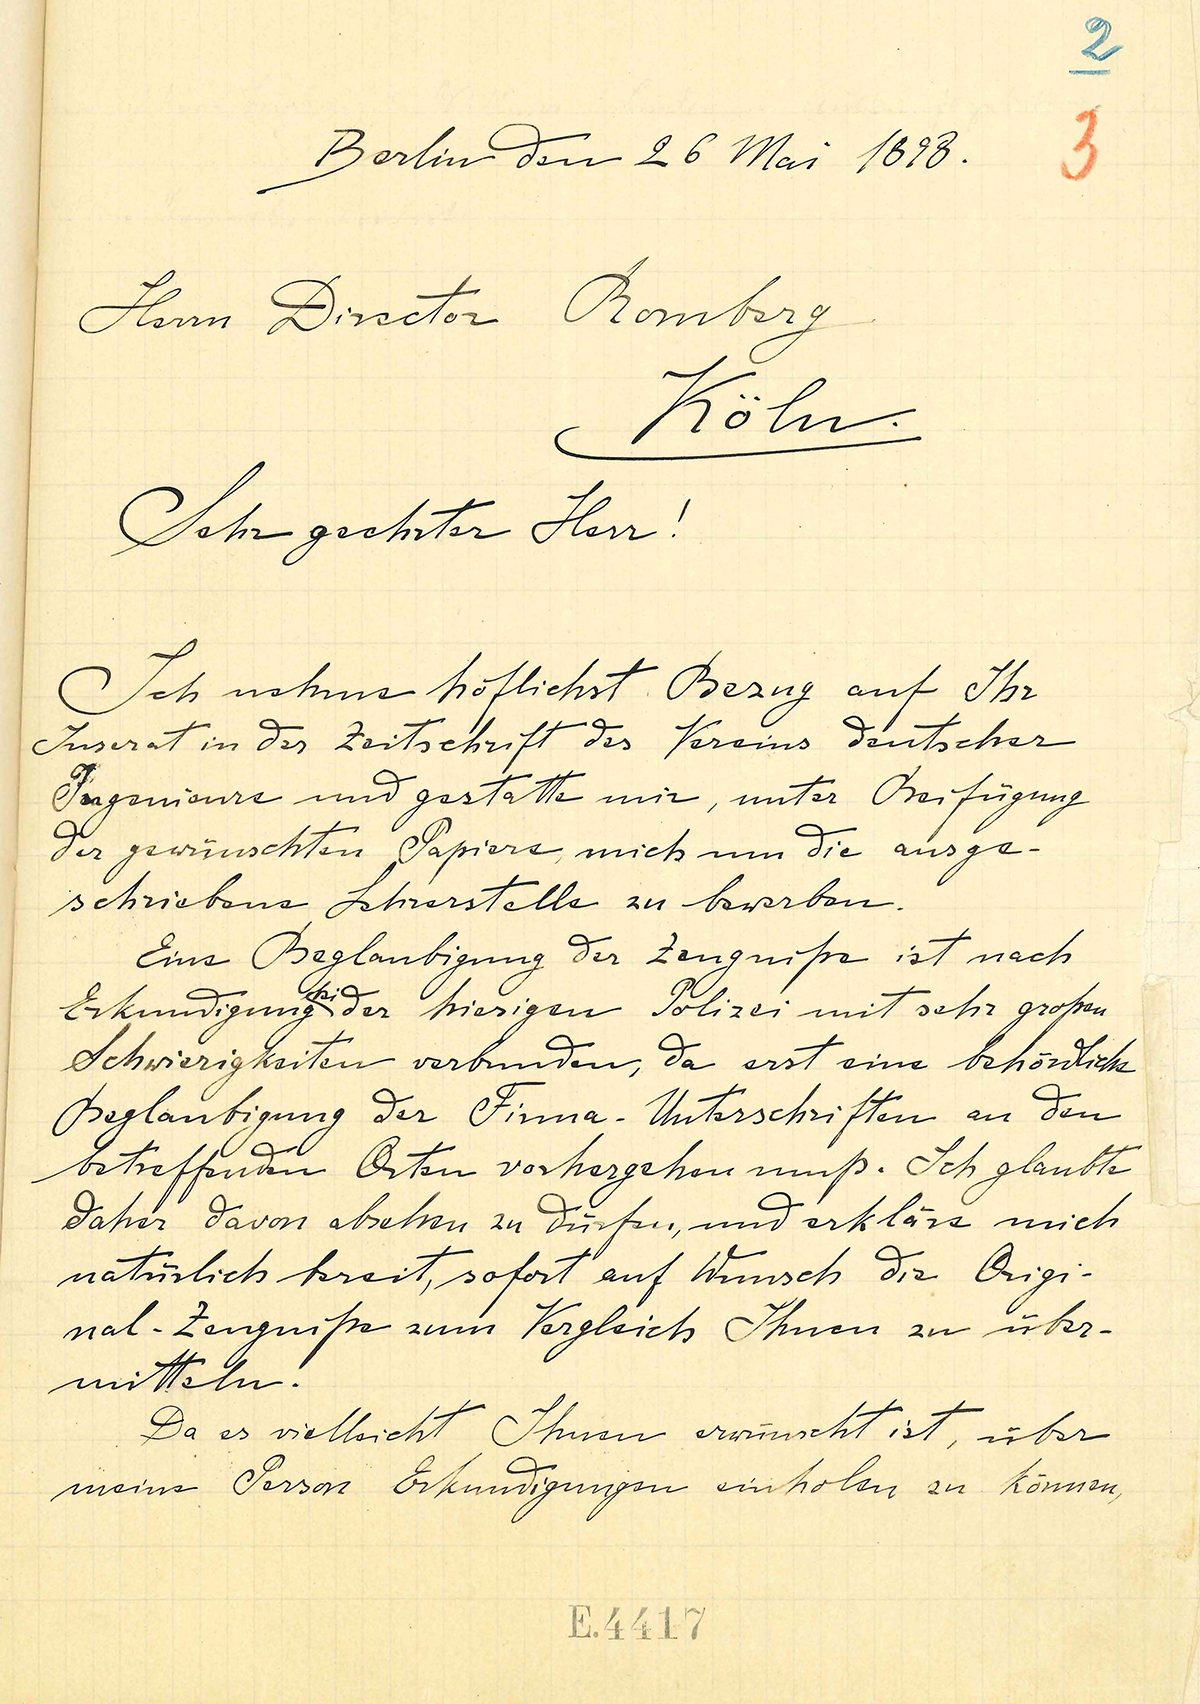 2
3
Berlin den 26 Mai 1898.
Herrn Director Romberg
Köln.
Sehr geehrter Herr!
Ich nehme höflichst Bezug auf Ihr
Inserat in der Zeitschrift des Vereins deutscher
Ingenieure und gestatte mir, unter Beifügung
der gewünschten Papiere, mich um die ausge-
schriebene Lehrerstelle zu bewerben.
Eine Beglaubigung der Zeugniße ist nach
Erkundigung bei der hiesigen Polizei mit sehr großen
Schwierigkeiten verbunden, da erst eine behördliche
Beglaubigung der Firma-Unterschriften an den
betreffenden Orten vorhergehen muß. Ich glaubte
daher davon absehen zu dürfen, und erkläre mich
natürlich bereit, sofort auf Wunsch die Origi-
nal-Zeugniße zum Vergleich Ihnen zu über-
mitteln.
Da es vielleicht Ihnen erwünscht ist, über
meine Person Erkundigungen einholen zu können,
E.4417